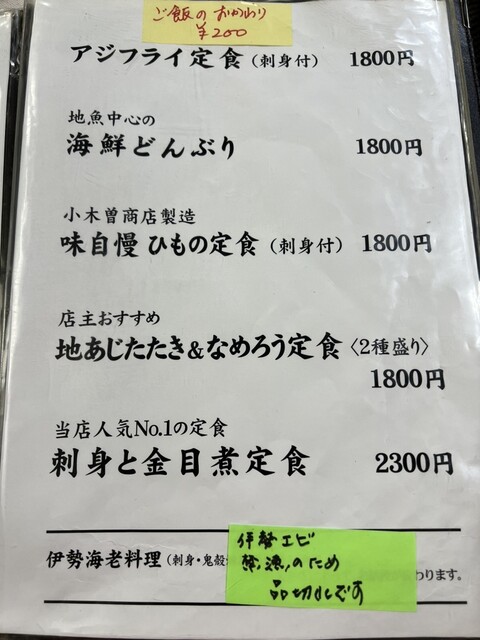 ご飯のおかわり
¥200
アジフライ定食(刺身付) 1800円
地魚中心の
海鮮どんぶり 1800円
小木曽商店製造
味自慢 ひもの定食(刺身付) 1800円
店主おすすめ
地あじたたき&なめろう定食〈2種盛り〉
1800円
当店人気No.1の定食
刺身と金目煮定食 2300円
伊勢海老料理(刺身・鬼殻 わります。
伊勢エビ
禁漁のため
品切れです